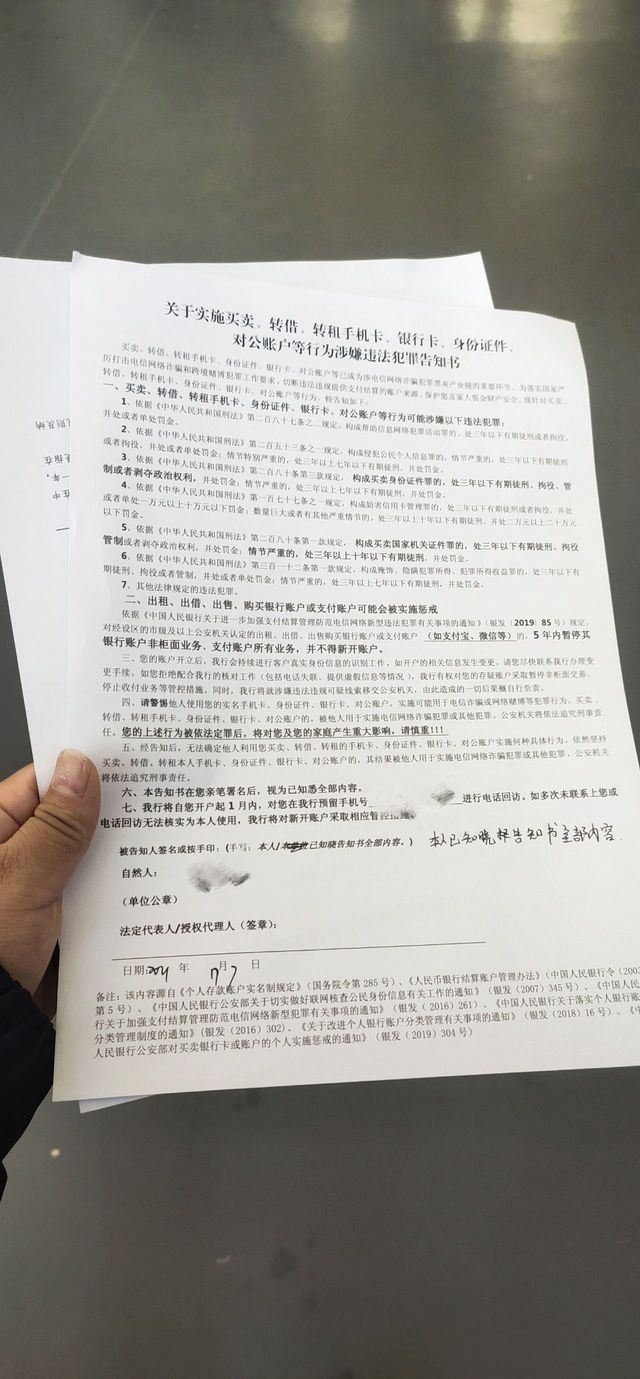 关于实施买卖、转借、转租手机卡、银行卡、身份证件、
对公账户等行为涉嫌违法犯罪告知书
买卖、转借、转租手机卡、身份证件、银行卡、对公账户等已成为涉电信网络诈骗犯罪黑灰产业链的重要环节，为落实国家严
厉打击电信网络诈骗和跨境赌博犯罪工作要求，切断违法违规提供支付结算的账户来源，保护您及家人资金财产安全，现针对买卖、
转借、转租手机卡、身份证件、银行卡、对公账户等行为，特告知如下：
一、买卖、转借、转租手机卡、身份证件、银行卡、对公账户等行为可能涉嫌以下违法犯罪：
1、依据《中华人民共和国刑法》第二百八十七条之二规定，构成帮助信息网络犯罪活动罪的，处三年以下有期徒刑或者拘役，
并处或者单处罚金。
2、依据《中华人民共和国刑法》第二百五十三条之一规定，构成侵犯公民个人信息罪的，情节严重的，处三年以下有期徒刑
或者拘役，并处或者单处罚金；情节特别严重的，处三年以上七年以下有期徒刑，并处罚金。
3、依据《中华人民共和国刑法》第二百八十条第三款规定，构成买卖身份证件罪的，处三年以下有期徒刑、拘役、管
制或者剥夺政治权利，并处罚金；情节严重的，处三年以上七年以下有期徒刑，并处罚金。
4、依据《中华人民共和国刑法》第一百七十七条之一规定，构成妨害信用卡管理罪的，处三年以下有期徒刑或者拘役，并处
或者单处一万元以上十万元以下罚金；数量巨大或者有其他严重情节的，处三年以上十年以下有期徒刑，并处二万元以上二十万元
以下罚金。
5、依据《中华人民共和国刑法》第二百八十条第一款规定，构成买卖国家机关证件罪的，处三年以下有期徒刑、拘役
管制或者剥夺政治权利，并处罚金；情节严重的，处三年以上十年以下有期徒刑，并处罚金。
6、依据《中华人民共和国刑法》第三百一十二条第一款规定，构成掩饰、隐瞒犯罪所得、犯罪所得收益罪的，处三年以下有
期徒刑、拘役或者管制，并处或者单处罚金；情节严重的，处三年以上七年以下有期徒刑，并处罚金。
7、其他法律规定的违法犯罪。
二、出租、出借、出售、购买银行账户或支付账户可能会被实施惩戒
依据《中国人民银行关于进一步加强支付结算管理防范电信网络新型违法犯罪有关事项的通知》（银发〔2019〕85号）规定，
对经设区的市级及以上公安机关认定的出租、出借、出售购买银行账户或支付账户（如支付宝、微信等）的，5年内暂停其
银行账户非柜面业务、支付账户所有业务，并不得新开账户。
三、您的账户开立后，我行会持续进行客户真实身份信息的识别工作，如开户的相关信息发生变更，请您尽快联系我行办理变
更手续，如您拒绝配合我行的核对工作（包括电话失联、提供虚假信息等情况），我行有权对您的存款账户采取暂停非柜面交易、
停止收付业务等管控措施。同时，我行将就涉嫌违法违规可疑线索移交公安机关，由此造成的一切后果概自行负责。
四、请警惕他人使用您的实名手机卡、身份证件、银行卡、对公账户，实施可能用于电信诈骗或网络赌博等犯罪行为。买卖、
转借、转租手机卡、身份证件、银行卡、对公账户的，被他人用于实施电信网络诈骗犯罪或其他犯罪，公安机关将依法追究刑事责
任。您的上述行为被依法定罪后，将对您及您的家庭产生重大影响，请慎重!!!
五、经告知后，无法确定他人利用您买卖、转借、转租的手机卡、身份证件、银行卡、对公账户实施何种具体行为，依然坚持
买卖、转借、转租本人手机卡、身份证件、银行卡、对公账户的，其结果被他人用于实施电信网络诈骗犯罪或其他犯罪，公安机关
将依法追究刑事责任。
六、本告知书在您亲笔署名后，视为已知悉全部内容。
七、我行将自您开户起1月内，对您在我行预留手机号 进行电话回访。如多次未联系上您或
电话回访无法核实为本人使用，我行将对新开账户采取相应管控措施。
被告知人签名或按手印：（手写：本人/ 已知晓告知书全部内容。） 本人已知晓 告知书全部内容
自然人：
（单位公章）
法定代表人/授权代理人（签章）：
日期： 年 月 日
备注：该内容源自《个人存款账户实名制规定》（国务院令第285号）、《人民币银行结算账户管理办法》（中国人民银行令〔2003
第5号）、《中国人民银行公安部关于切实做好联网核查公民身份信息有关工作的通知》（银发〔2007〕345号）、《中国人民
行关于加强支付结算管理防范电信网络新型犯罪有关事项的通知》（银发〔2016〕261）、《中国人民银行关于落实个人银行账
分类管理制度的通知》（银发〔2016〕302）、《关于改进个人银行账户分类管理有关事项的通知》（银发〔2018〕16号）、《中
人民银行公安部对买卖银行卡或账户的个人实施惩戒的通知》（银发〔2019〕304号）